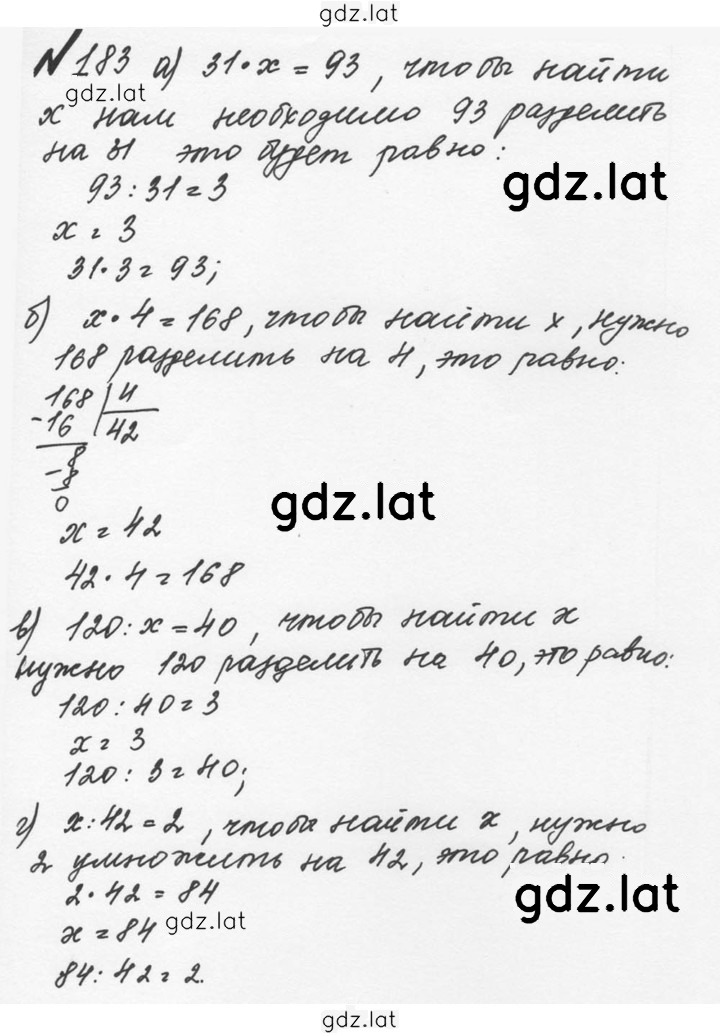 gdz.lat
№183 а) 31·x = 93, чтобы найти
gdz.lat
x нам необходимо 93 разделить
на 31 это будет равно:
93:31=3
gdz.lat
x = 3
31·3 = 93;
б) x·4=168, чтобы найти x, нужно
168 разделить на 4, это равно:
168 4
-16 42
8
-8
0
gdz.lat
x = 42
42·4=168
в) 120:x=40, чтобы найти x
нужно 120 разделить на 40, это равно:
120:40=3
x = 3
120:3=40;
г) x:42=2, чтобы найти x, нужно
2 умножить на 42, это равно.
2·42=84
gdz.lat
x=84 gdz.lat
84:42=2.
gdz.lat